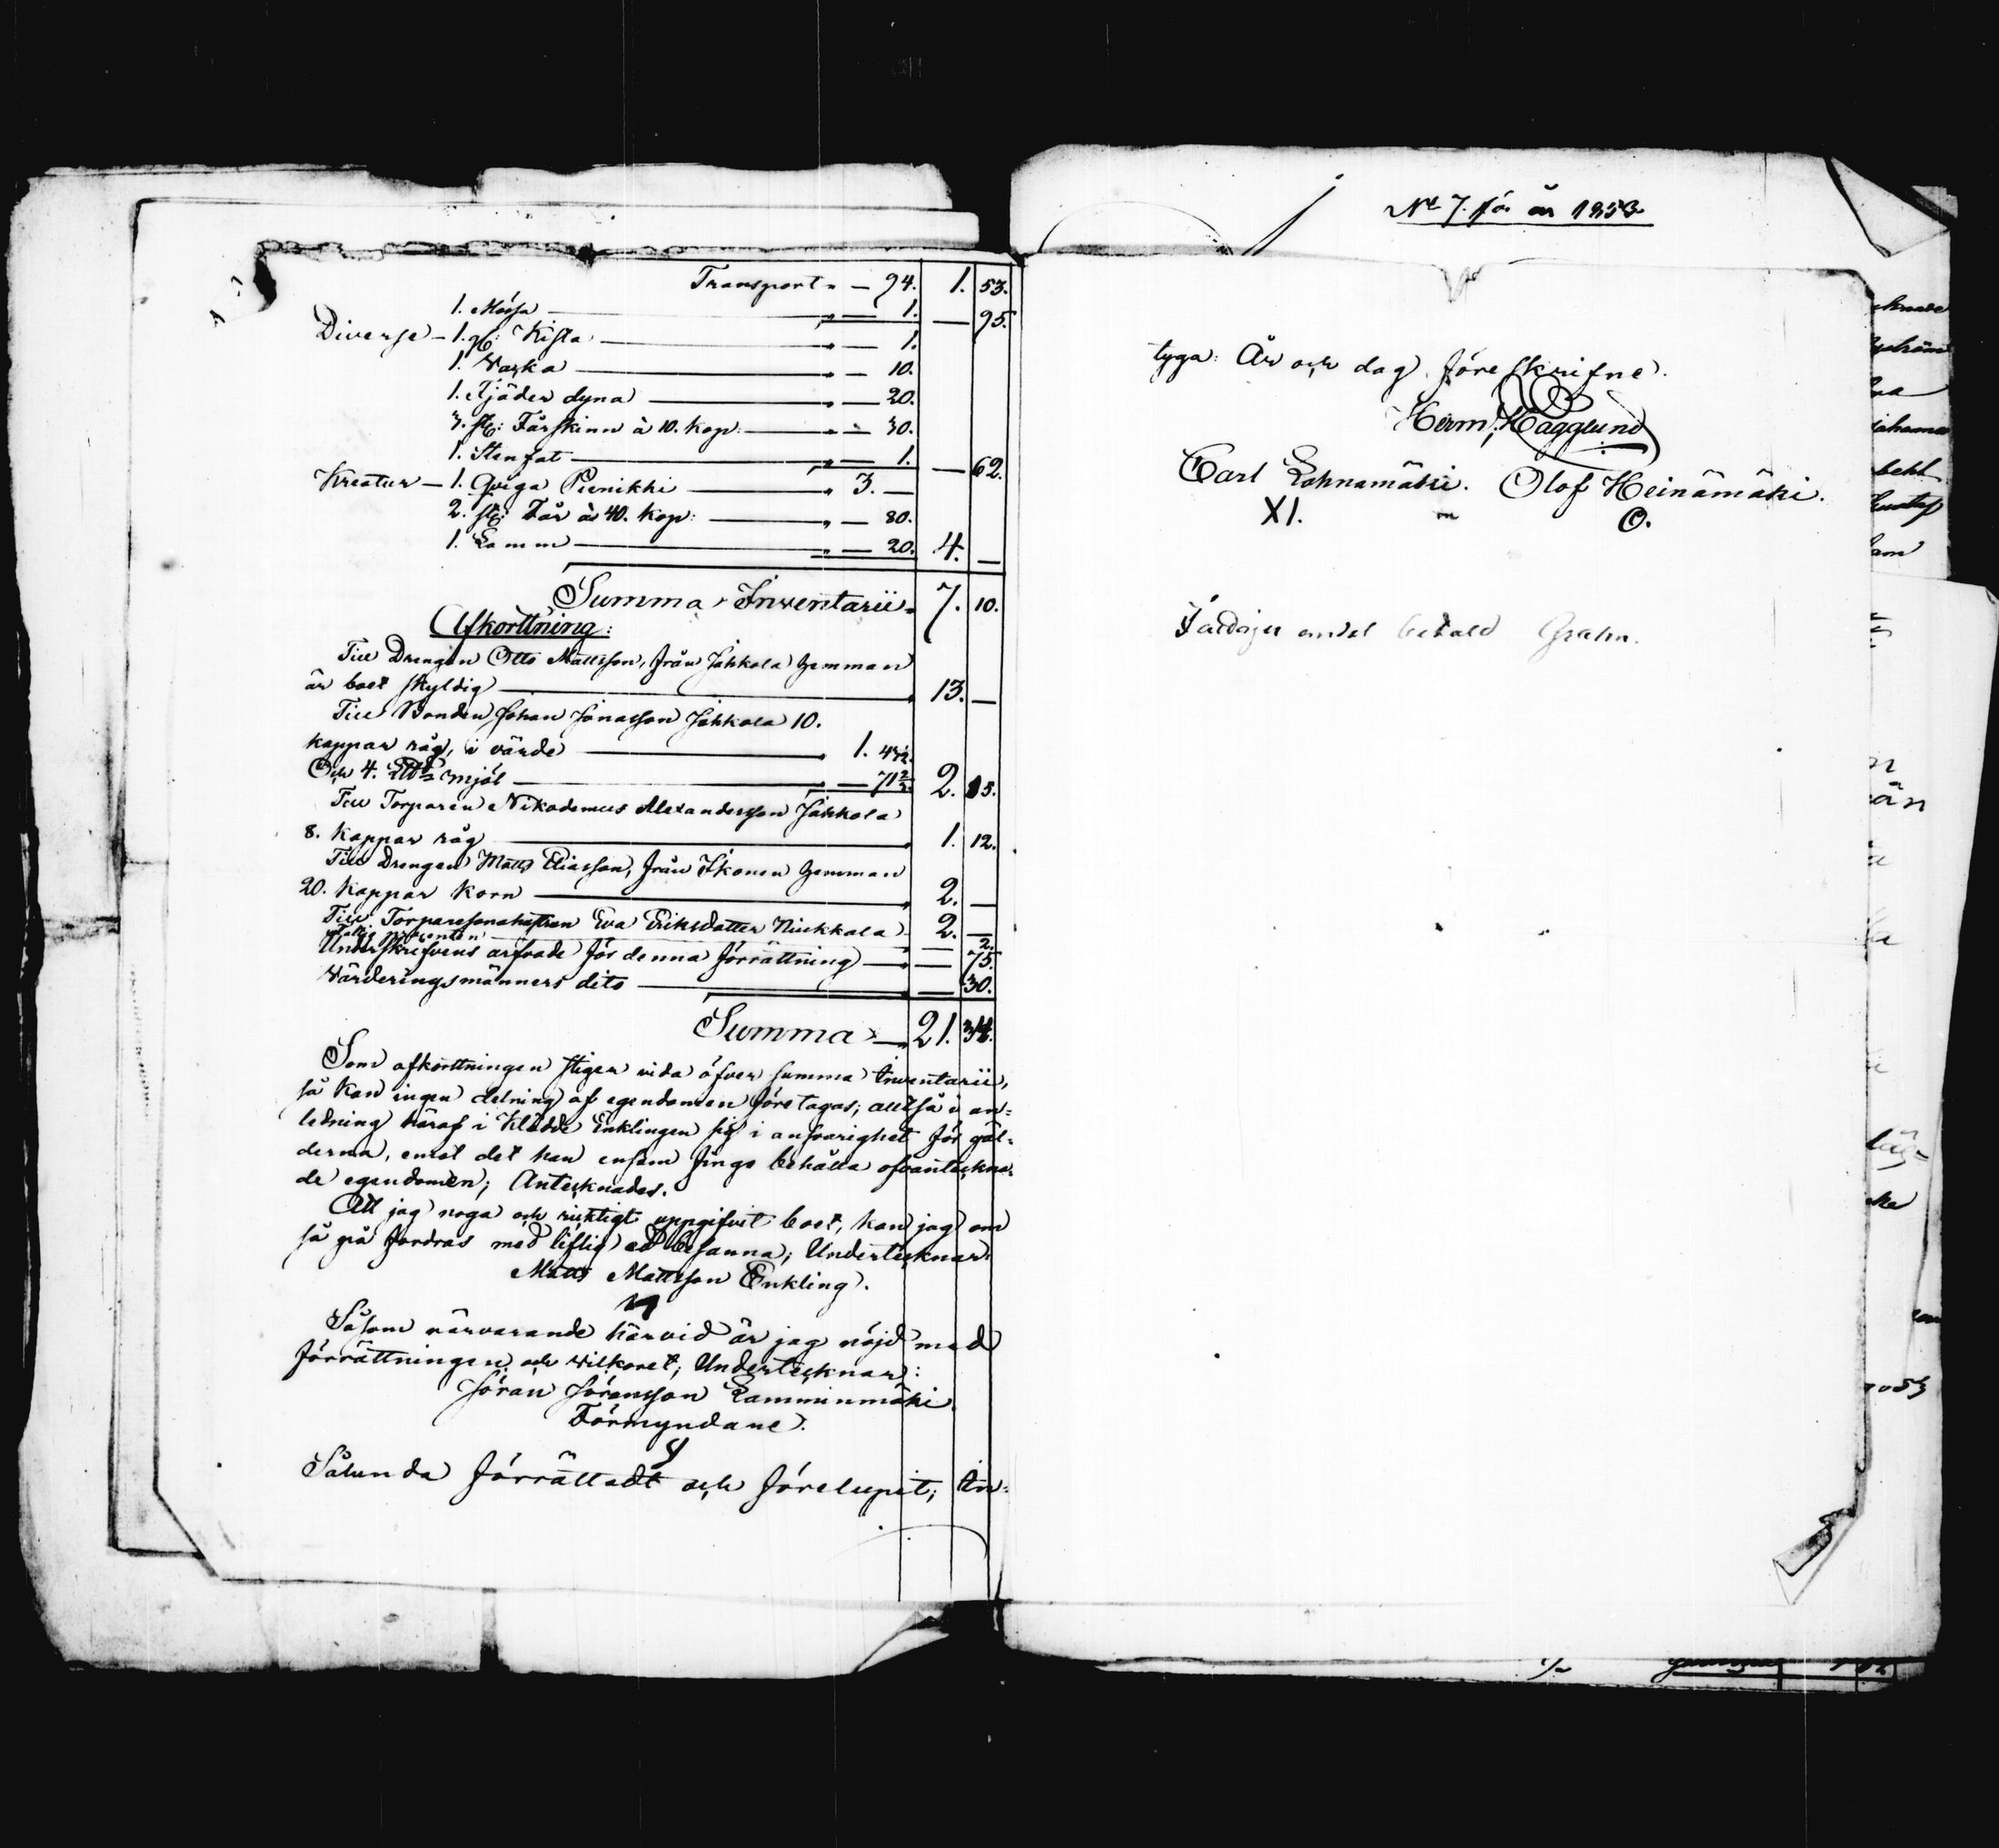 Transport " — 94. 1. 53.
1. Mössa " — 1. — 95.
Diverse — 1. st: Kista " — 1.
1. Vacka " — 10.
1. Fjäder dyna " — 20.
3. st: Fårskinn à 10. kop: " — 30.
1. Stenfat " — 1. — 62.
Kreatur — 1. Qviga Pienikki " 3. —
2. st: Får à 40. kop: " — 80.
1. Lamm " — 20. 4. —
Summa Inventarii " 7. 10.
Afkorttning:
Till Drengen Otto Mattsson, från Jåhkola hemman
är boet skyldig 13. —
Till Bonden Johan Jonasson Jåhkola 10.
kappar råg, i värde 1.
Och 4. mjöl — 71 2/3. 2. 15.
Till Torparen Nikodemus Alexandersson Jåhkola
8. kappar råg 1. 12.
Till Drengen Matts Eliasson, från Ikonen hemman
20. kappar korn 2. —
Till Torparesonahustrun Eva Eriksdotter Niukkala 2. —
Fattig procenten — 2.
Underskrefvens arfvode för denna förrättning — 75.
Värderingsmänners dito — 30.
Summa 21. 34.
Som afkorttningen stiger vida öfver summa Inventarii,
så kan ingen delning af egendomen företagas; alltså i an=
ledning häraf i klädde Enklingen sig i ansvarighet för gäl=
derna, emot det han ensam finge behålla ofvanteckna=
de egendomen; Antecknades.
Att jag noga och riktigt uppgifvit boet, kan jag om
så på fordras med liflig ed besanna; Undertecknar:
Matts Mattsson Enkling.
Såsom närvarande härvid är jag nöjd med
förrättningen och vilkoret; Undertecknar:
Jöran Jöransson Lamminmäki
Förmyndare.
Sålunda förrättadt och förelupit; in=
No 7. för år 1853.
tyga: År och dag föreskrifne.
Herm: Hägglund
Carl Lohnamäki. Olof Heinämäki.
XI. O.
andel betald Grahn.